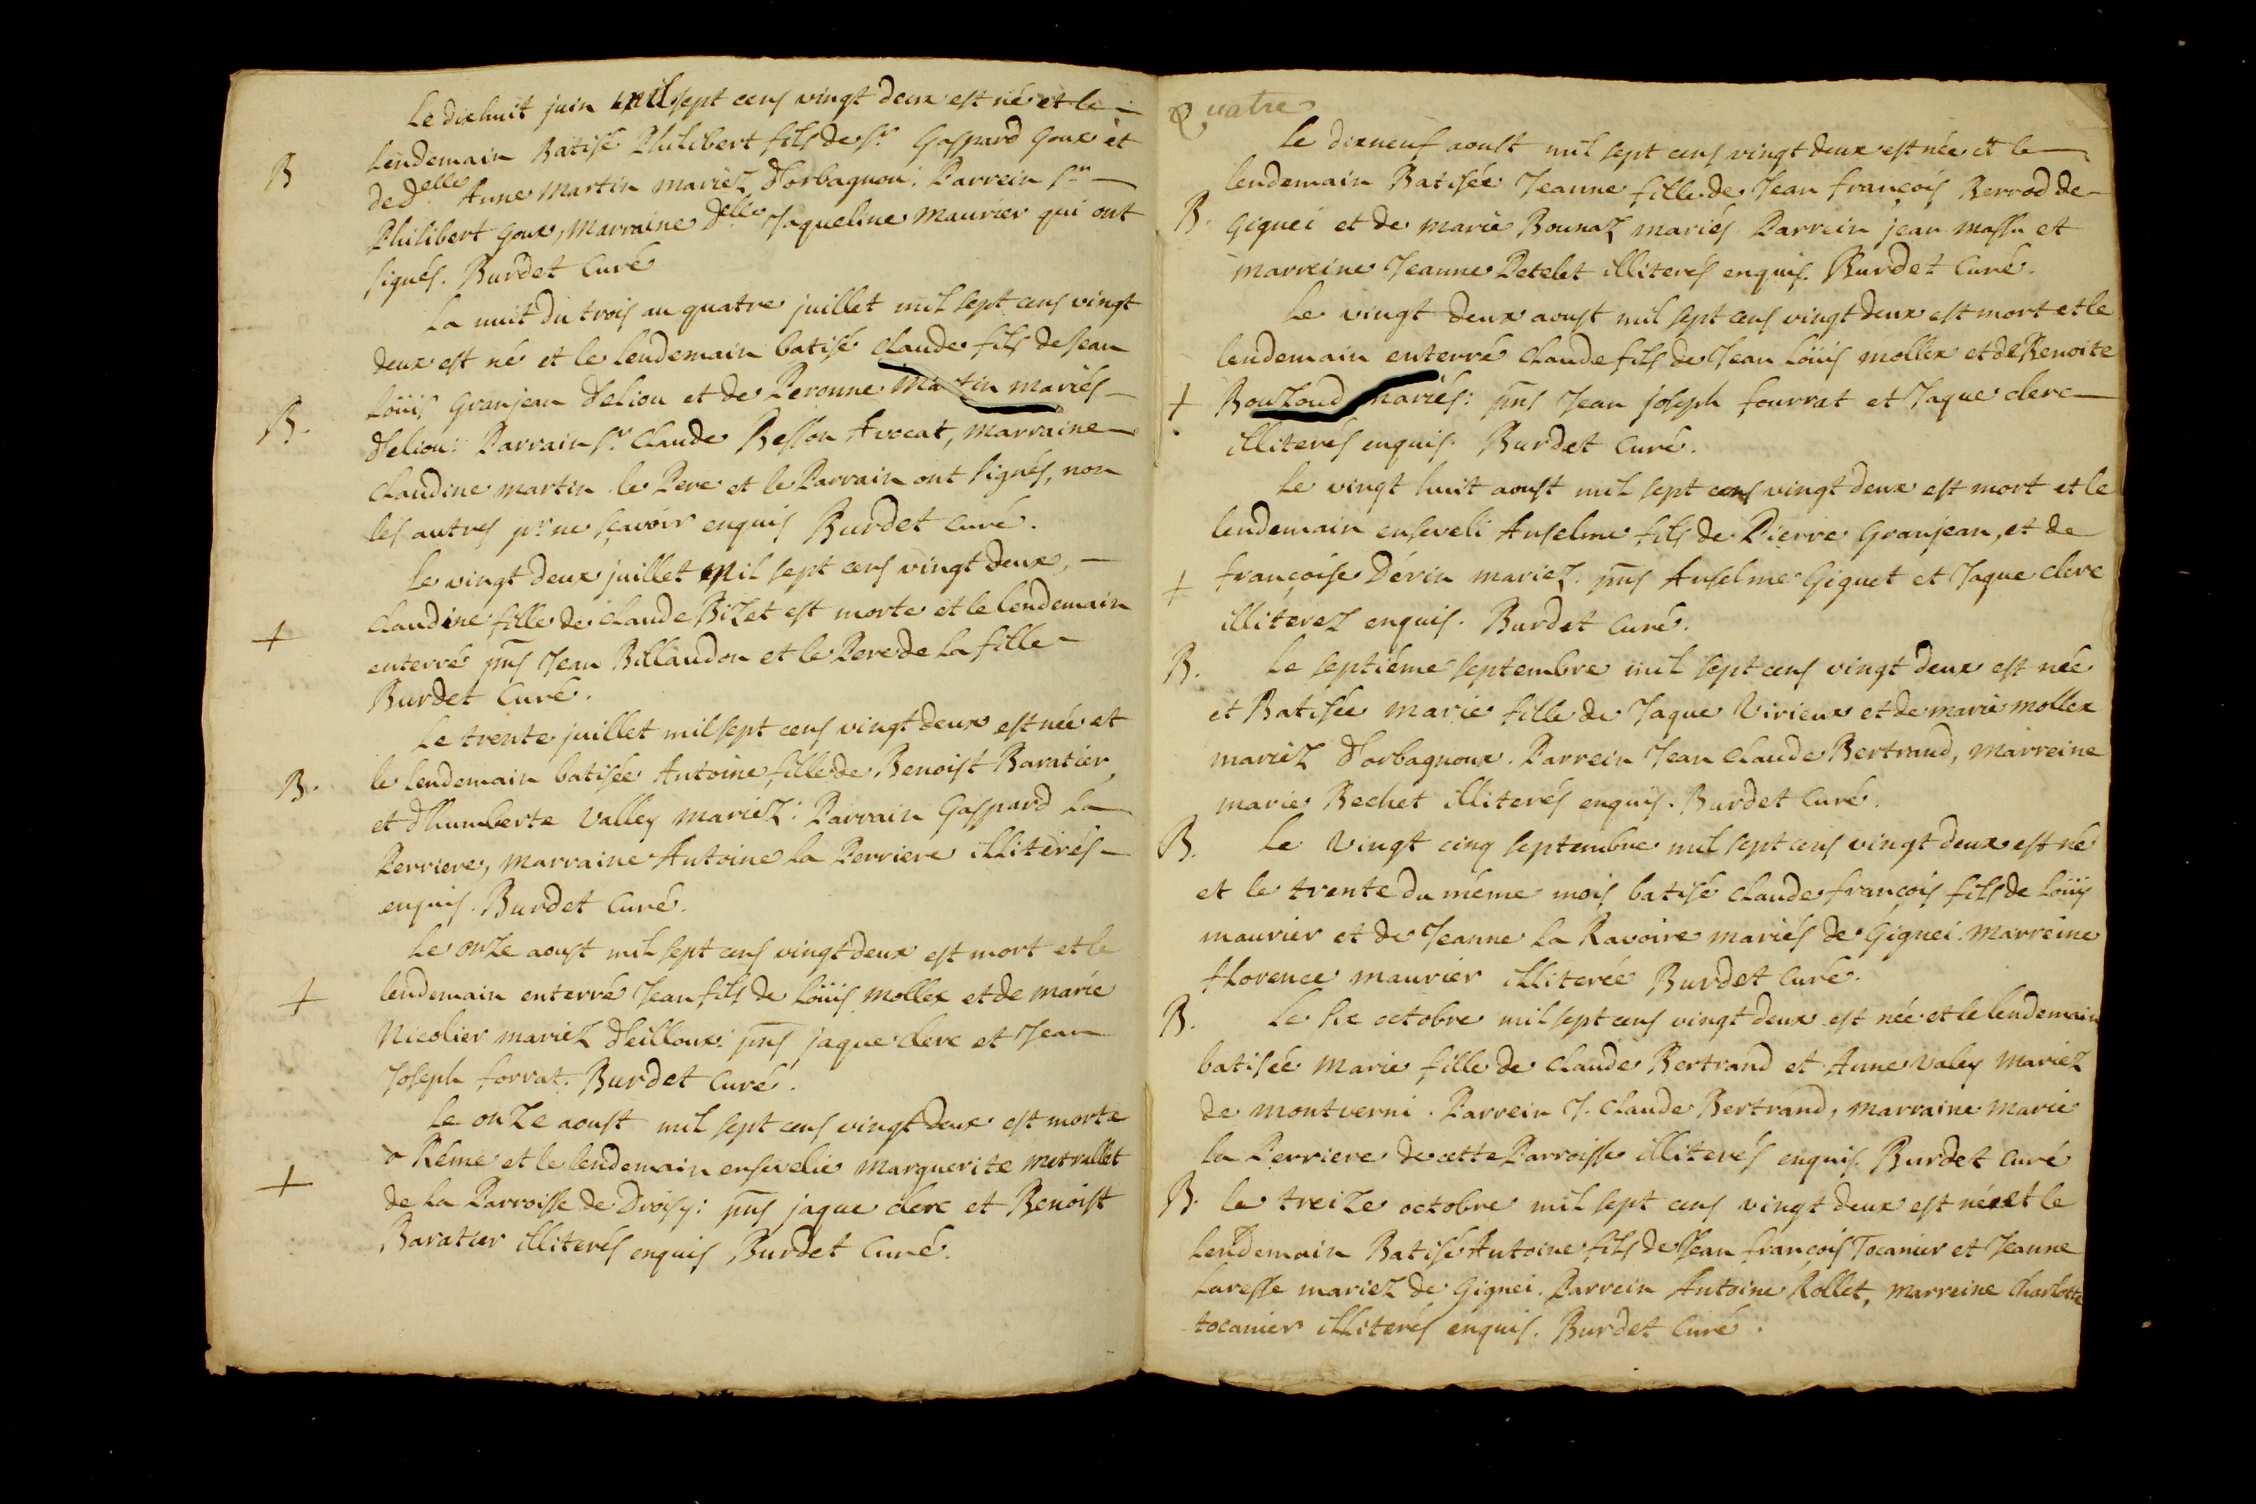 Le dixhuit juin mil sept cens vingt deux est né et le
B
lendemain Batisé Philibert fils de Sr. Gaspard Goux et
de delle Anne Martin mariez d'orbagnou. Parrein Sr.
Philibert Goux, Marraine delle Jaqueline Maurier qui ont
signés. Burdet Curé
La nuit du trois au quatre juillet mil sept cens vingt
deux est né et le lendemain batisé claude fils de Jean
B.
Loüis Granjean d'eliou et de Peronne Martin mariés
d'eliou: Parrain Sr. Claude Besson Avocat, marraine
Claudine martin le Pere et le Parrain ont signés, non
les autres pr. ne sçavoir enquis Burdet curé.
Le vingt deux juillet mil sept cens vingt deux,
+
claudine fille de claude Bizet est morte et le lendemain
enterré pns Jean Billaudon et le Pere de la fille
Burdet Curé.
Le trente juillet mil sept cens vingt deux est née et
B.
le lendemain batisée Antoine fille de Benoist Baratier
et d'humberte Valley mariez: Parrain Gaspard La
Perriere, marraine Antoine la Perriere illiterés
enquis. Burdet Curé.
Le onze aoust mil sept cens vingt deux est mort et le
+
lendemain enterré Jean fils de Loüis mollex et de marie
Nicolier mariez d'eilloux: pns jaque clerc et Jean
Joseph forrat. Burdet Curé.
Le onze aoust mil sept cens vingt deux est morte
+
o Reme et le lendemain ensevelie marguerite metrallet
de la Parroisse de Droisy: pns jaque clerc et Benoist
Baratier illiterés enquis Burdet Curé.
Quatre
Le dixneuf aoust mil sept cens vingt deux est née et le
lendemain Batisée Jeanne fille de Jean françois Berrod de
B.
Gignei et de marie Bounaz mariés Parrein jean massu et
marreine Jeanne Petelet illiterés enquis. Burdet Curé.
Le vingt deux aoust mil sept cens vingt deux est mort et le
lendemain enterré claude fils de Jean Loüis mollex et de Benoite
+
Bouzoud mariés: pns Jean joseph fourrat et Jaque clerc
illiterés enquis. Burdet Curé.
Le vingt huit aoust mil sept cens vingt deux est mort et le
lendemain enseveli Anselme fils de Pierre Granjean, et de
+
françoise Dévin mariez. pns Anselme Giguet et Jaque clerc
illiterez enquis. Burdet Curé.
B.
Le septiéme septembre mil sept cens vingt deux est née
et Batisée marie fille de Jaque Virieux et de marie mollex
mariez d'orbagnoux. Parrein Jean Claude Bertrand, Marreine
marie Bechet illiterés enquis. Burdet Curé.
B.
Le vingt cinq septembre mil sept cens vingt deux est né
et le trente du même mois batisé claude françois fils de Loüis
maurier et de Jeanne la Ravoire mariés de Gignei. Marreine
florence maurier illiterée Burdet Curé.
B.
Le six octobre mil sept cens vingt deux est née et le lendemain
batisée marie fille de claude Bertrand et Anne valey mariez
de montverni. Parrein J. claude Bertrand, marraine marie
la Perriere de cette Parroisse illiterés enquis. Burdet Curé
B.
le treize octobre mil sept cens vingt deux est né et le
lendemain Batisé Antoine fils de Jean françois Tocanier et Jeanne
Laresse mariez de Gignei. Parrein Antoine Rollet, marreine charlotte
tocanier illiterés enquis. Burdet Curé.